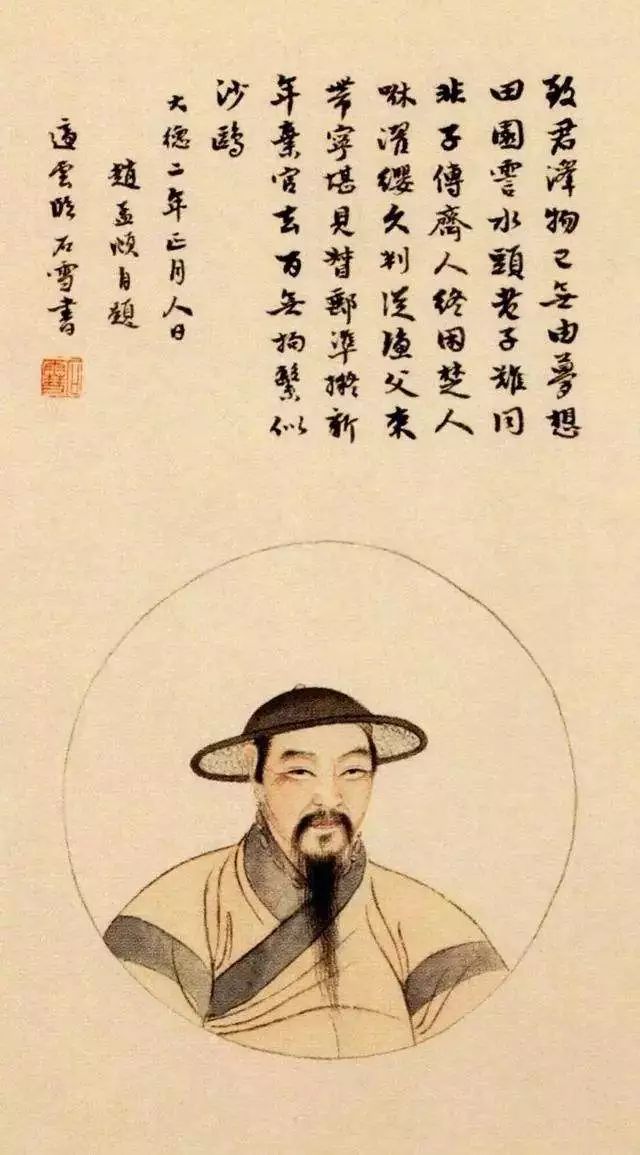 致君澤物已無由夢想
田園雲水頭老子難同
非子傳齊人終困楚人
咻濯纓久判從漁父束
帶寧堪見督郵準擬新
年棄官去百無拘繫似
沙鷗
大德二年正月人日
趙孟頫自題
適雲石雪書